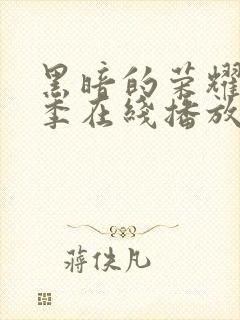 黑暗的荣耀
季在线播放
蒋佚凡